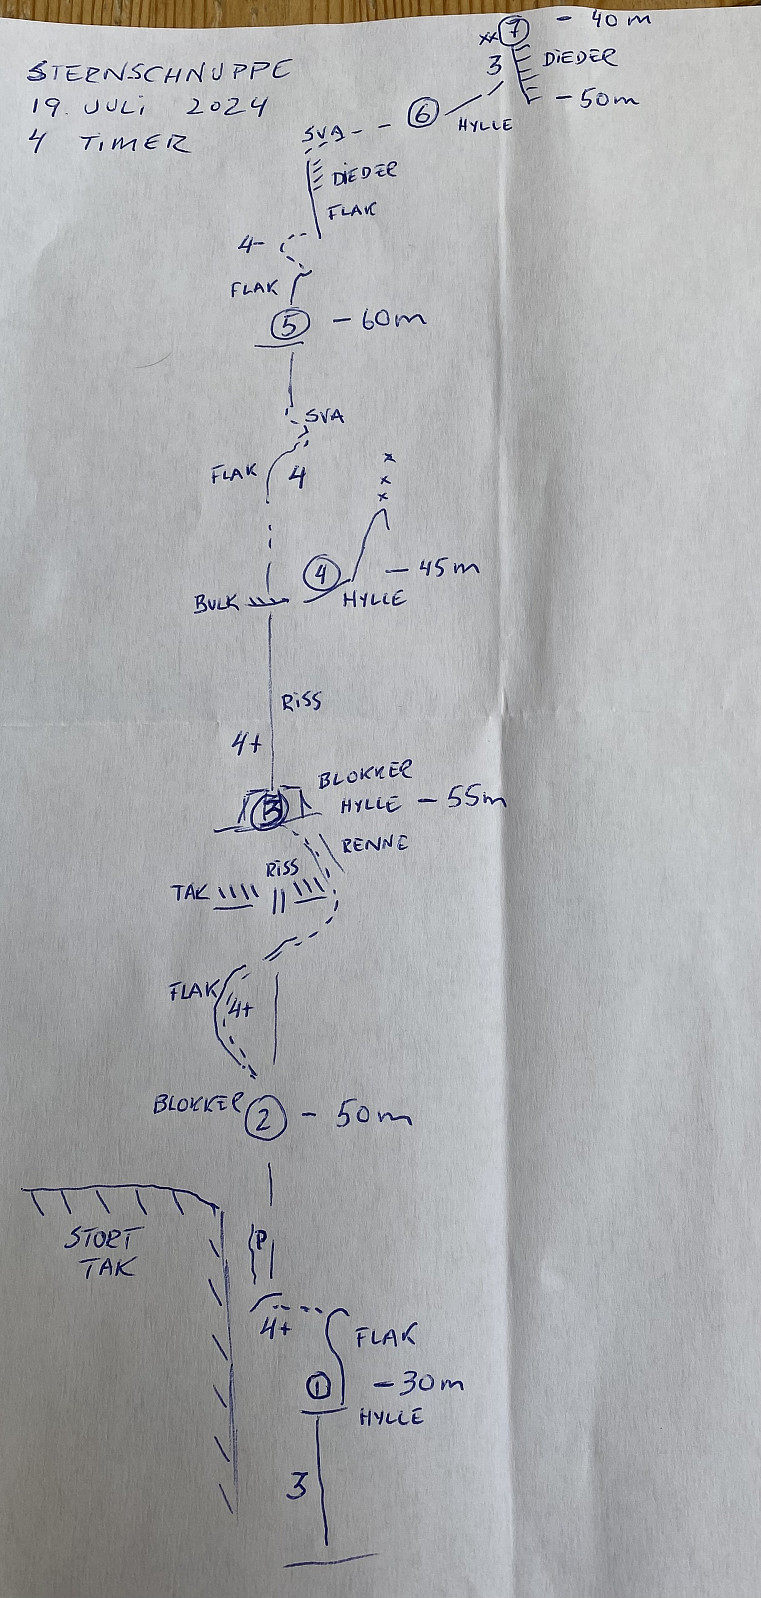 STERNSCHNUPPE
19. JULI 2024
4 TIMER
xx 7 - 40 m
3 DIEDER
- 50 m
6 HYLLE
SVA
DIEDER
FLAK
4-
FLAK
5 - 60 m
SVA
FLAK 4
x
x
x
4 - 45 m
BULK HYLLE
RISS
4+
BLOKKER
3 HYLLE - 55 m
RENNE
RISS
TAK
FLAK
4+
BLOKKER 2 - 50 m
STORT
TAK
P
4+
FLAK
1 - 30 m
HYLLE
3